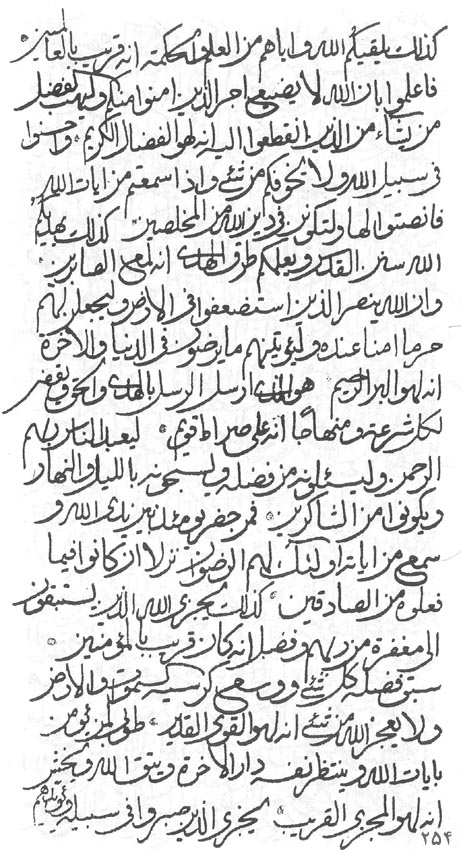 كذلك يلقيكم الله واباهم من العلم والحكمة انه قريب بالعالمين
فاعلموا بان الله لا يضيع اجر الذين امنوا منكم وليهب الفضل
من يشاء من الذين انقطعوا اليه انه لهو الفضال الكريم واحسنوا
في سبيل الله ولا يخوفكم من شئ واذا سمعتم من ايات الله
فانصتوا لها ولتكونن في دين الله من المخلصين كذلك يهديكم
الله سنن القدس ويعلمكم طرق الهدى انه لمع الصابرين
وان الله ينصر الذين استضعفوا في الارض وليجعلن لهم
حرما امنا عنده وليؤتينهم ما يرضون في الدنيا والاخرة
انه لهو البر الرحيم هو الذى ارسل الرسل بالهدى والحق
لكل شرعة ومنهاجا انه على صراط قويم ليعبد الناس ربهم
الرحمن وليسئلونه من فضله ويسبحونه بالليل والنهار
ويكونوا من الشاكرين فمن حضر يومئذ بين يدى الله و
سمع من اياته اولئك لهم الرضوان نزلا ان كانوا فيما
فعلوه من الصادقين كذلك يجزى الله الذين يستبقون
الى مغفرة من ربهم وفضل انه كان قريب بالمؤمنين
سبق فضله كل شئ ووسع كرسيه السموات والارض
ولا يعجز الله من شئ انه لهو القوى القدير طوبى لمن يؤمن
بايات الله وينتظر نفسه دار الاخرة ويتق الله ويخشى
انه لهو المجزى القريب يجزى الذين صبروا في سبيله ويؤتيهم
۲۵۴